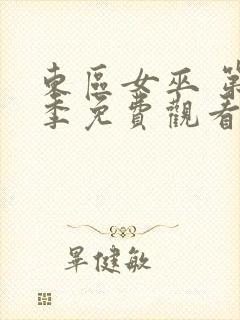 東區女巫 第
季免費觀看
畢健敏